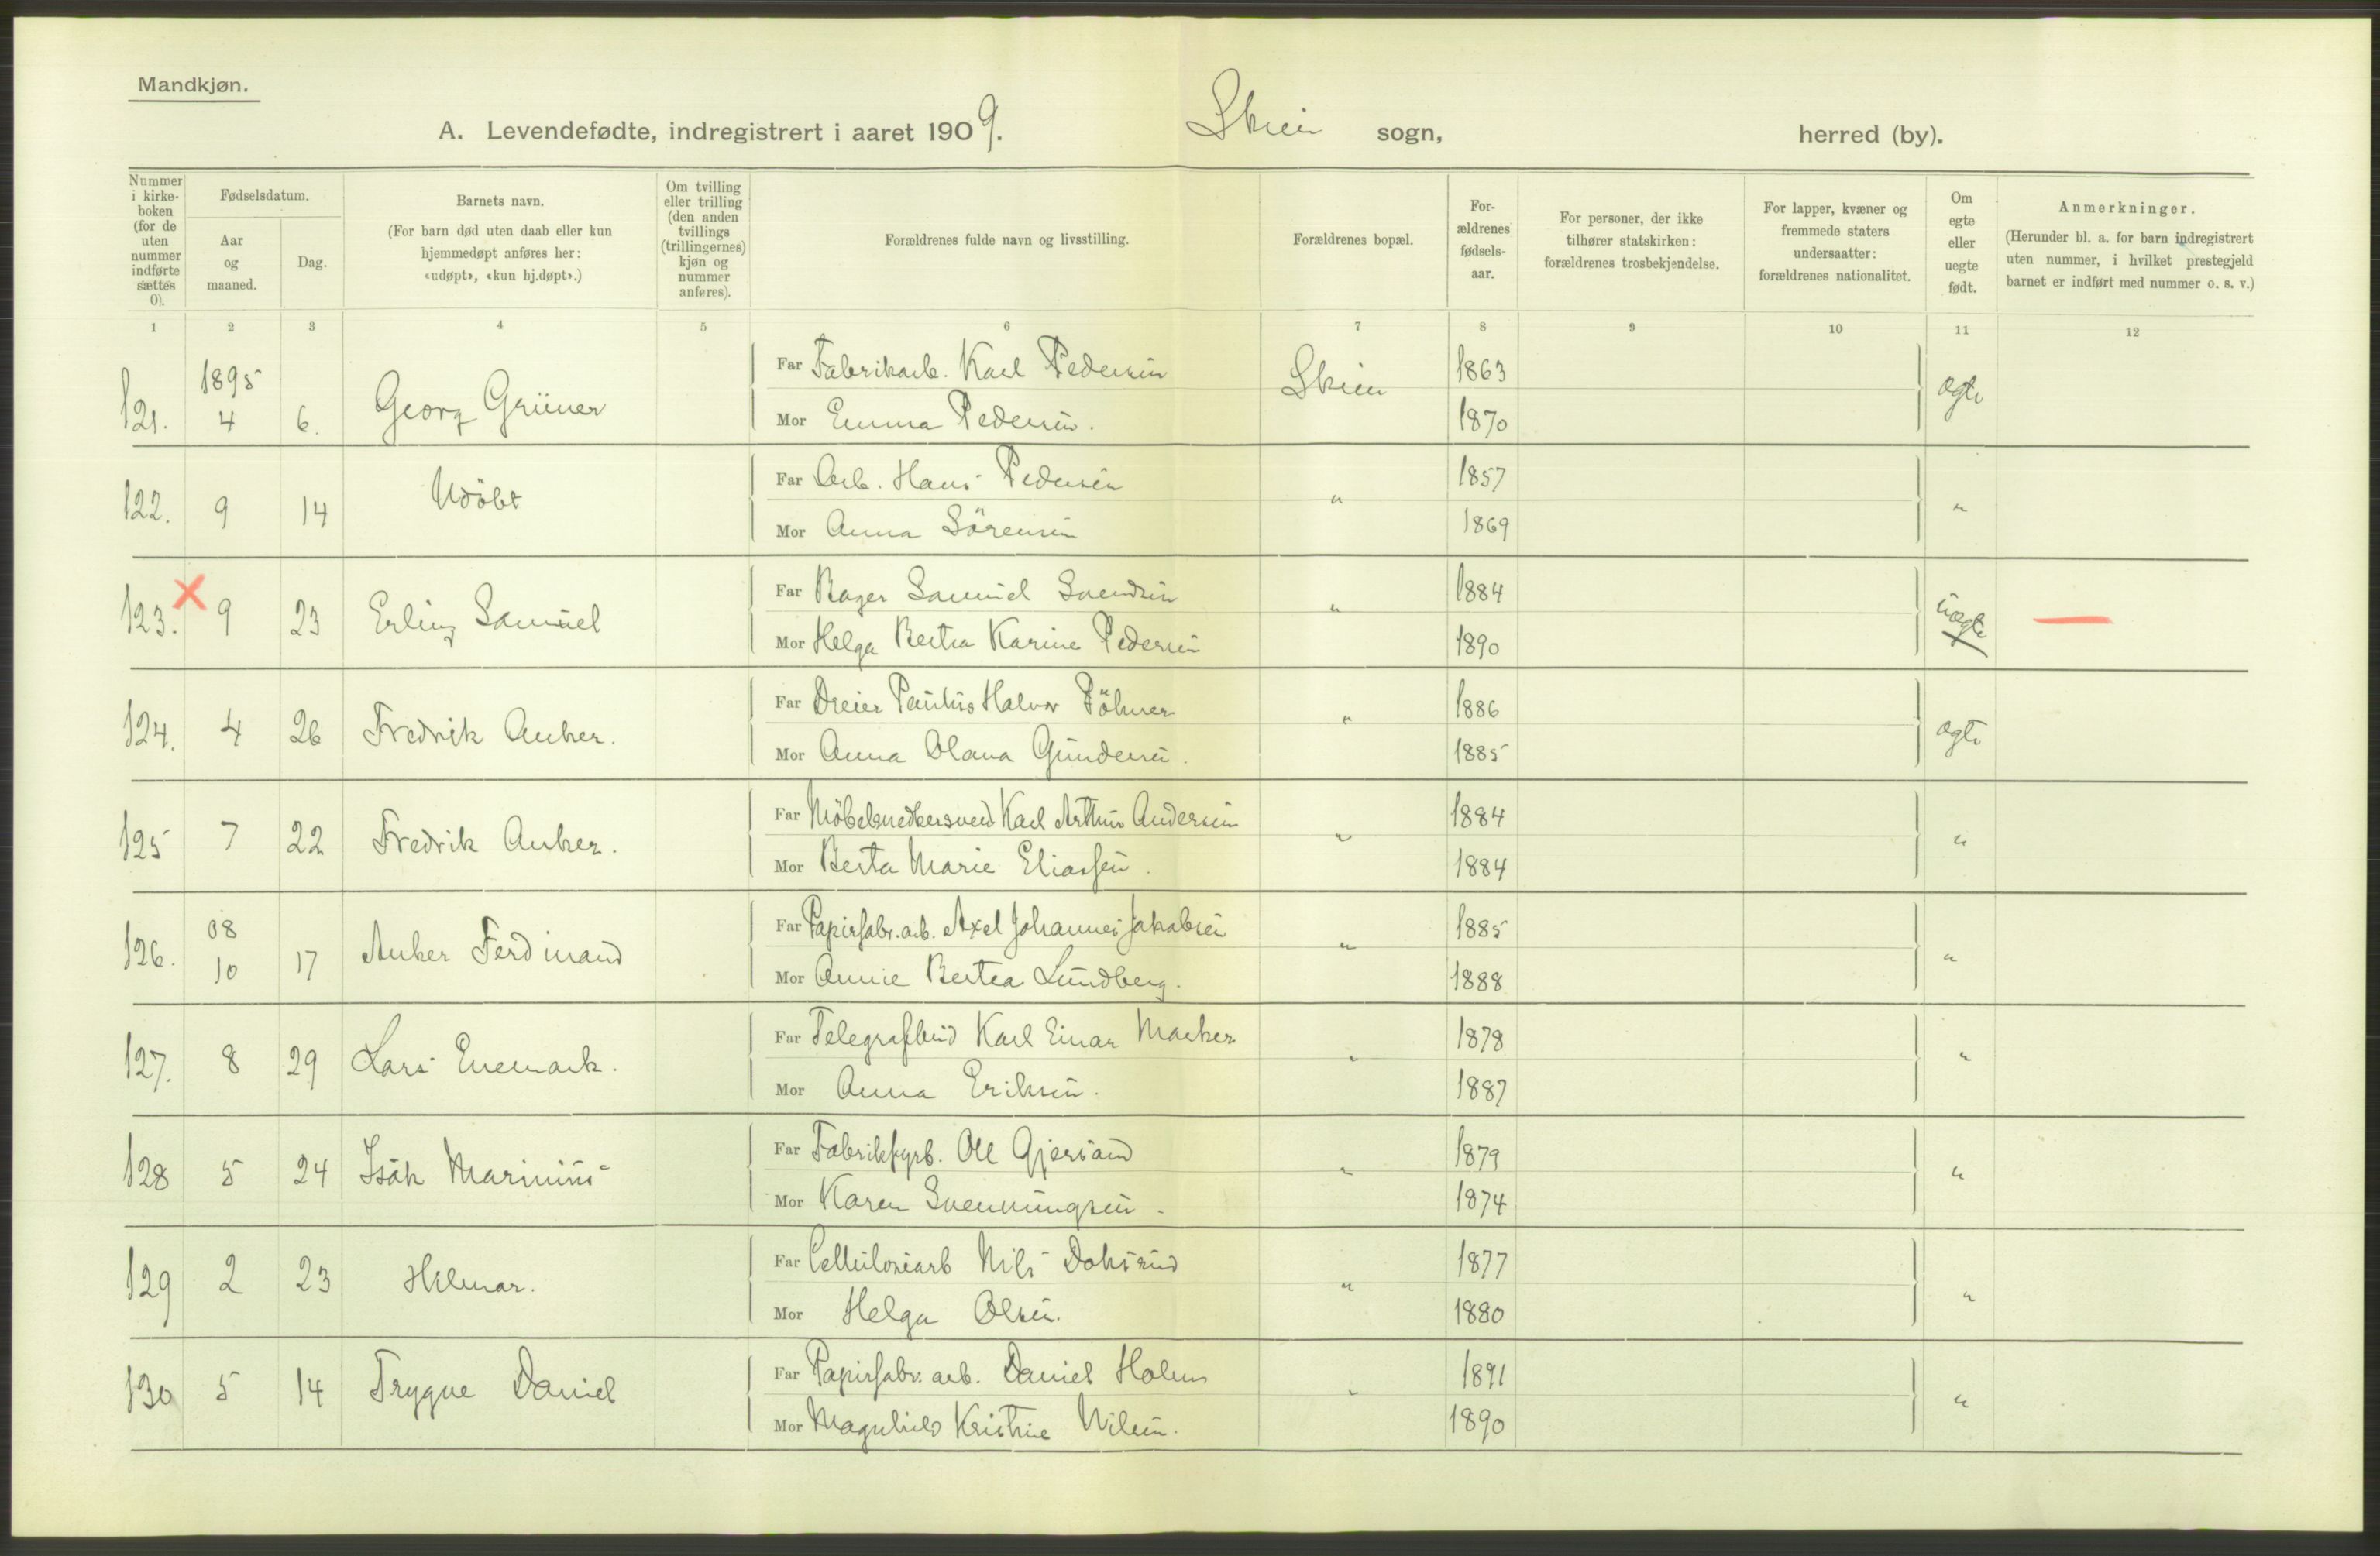 Mandkjøn.
A. Levendefødte, indregistrert i aaret 1909. Skien sogn, herred (by).
Nummer i kirke-boken (for de uten nummer indførte sættes 0).
Fødselsdatum.
Aar og maaned.
Dag.
Barnets navn.
(For barn død uten daab eller kun hjemmedøpt anføres her: «udøpt», «kun hj.døpt».)
Om tvilling eller trilling (den anden tvillings (trillingernes) kjøn og nummer anføres).
Forældrenes fulde navn og livsstilling.
Forældrenes bopæl.
For-ældrenes fødsels-aar.
For personer, der ikke tilhører statskirken: forældrenes trosbekjendelse.
For lapper, kvæner og fremmede staters undersaatter: forældrenes nationalitet.
Om egte eller uegte født.
Anmerkninger.
(Herunder bl. a. for barn indregistrert uten nummer, i hvilket prestegjeld barnet er indført med nummer o. s. v.)
1 2 3 4 5 6 7 8 9 10 11 12
121. 1895 4 6. Georg Grüner Far Fabrikarb. Karl Pedersen Skien 1863 ægte
Mor Emma Pedersen. 1870
122. 9 14 Udöbt Far Arb. Hans Pedersen " 1857 "
Mor Anna Sörensen 1869
123. 9 23 Erling Samuel Far Bager Samuel Svendsen " 1884 uægte
Mor Helga Bertea Karine Pedersen 1890
124. 4 26 Fredrik Anker. Far Dreier Paulus Halvor Pöhner " 1886 ægte
Mor Anna Olava Gundersen. 1885
125 7 22 Fredrik Anker. Far Möbelsnedkersvend Karl Arthur Andersen " 1884 "
Mor Berta Marie Eliassen. 1884
126. 08 10 17 Anker Ferdinand Far Papirfabr. arb. Axel Johannes Jakobsen " 1885 "
Mor Annie Bertea Lundberg. 1888
127. 8 29 Lars Enemark. Far Telegrafbud Karl Einar Marker " 1878 "
Mor Anna Eriksen. 1887
128 5 24 Isak Marinius Far Fabrikfyrb. Ole Gjersund " 1879 "
Mor Karen Svenningsen. 1874
129 2 23 Hilmar. Far Celluloscarb Nils Doksrud " 1877 "
Mor Helga Olsen. 1880
130 5 14 Trygve Daniel Far Papirfabr. arb. Daniel Holm " 1891 "
Mor Magnhild Kristine Nilsen. 1890